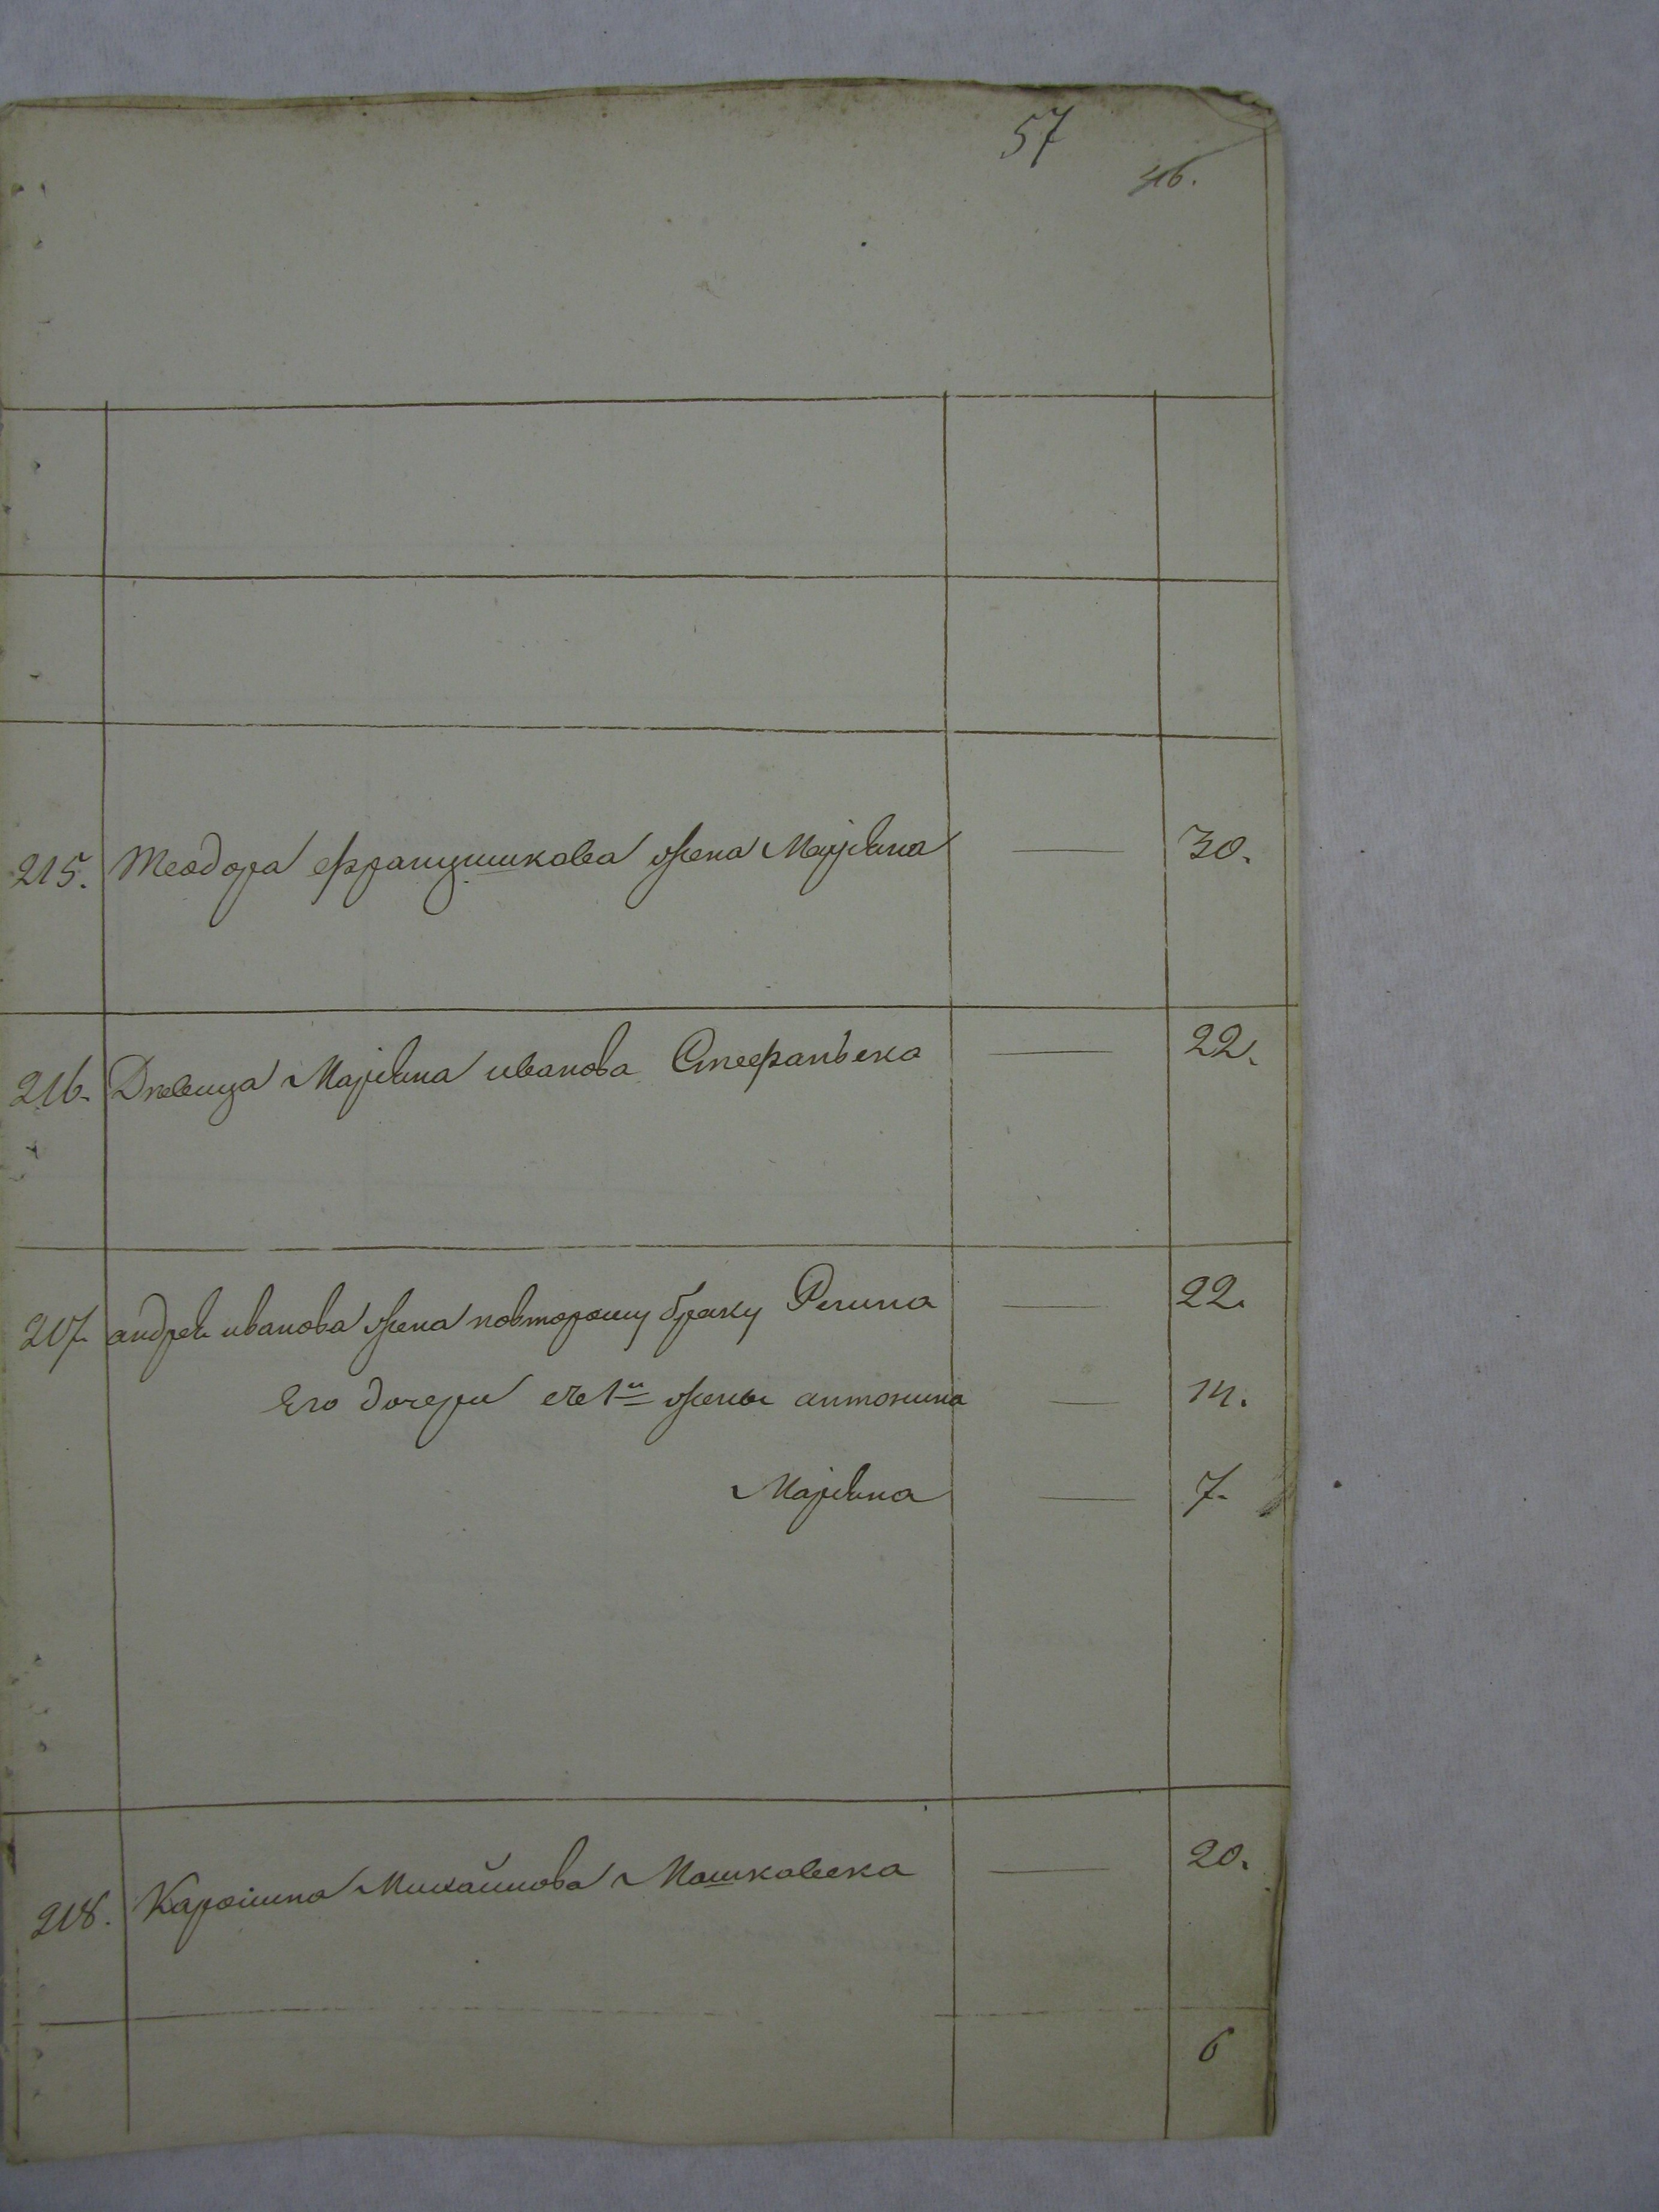 57
46.
215. Теодора францишкова жена Марiяна — 30.
216. Девица Марiяна иванова Стефанька — 22.
217. андрея иванова жена повторому браку Регина — 22.
Его дочери съ 1й жены антонина — 14.
Марiяна — 7.
218. Каролина Михайлова Машкавска — 20.
6